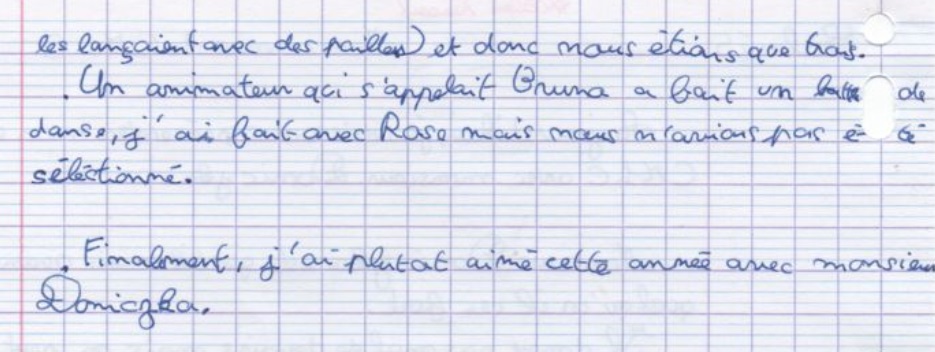 les lançaient avec des pailles) et donc nous étions que trois.
. Un animateur qui s'appelait Bruno a fait un de
danse, j'ai fait avec Rose mais nous n'avions pas é té
séléctionné.
. Finalement, j'ai plutot aimé cette année avec monsieur
Doniczka.